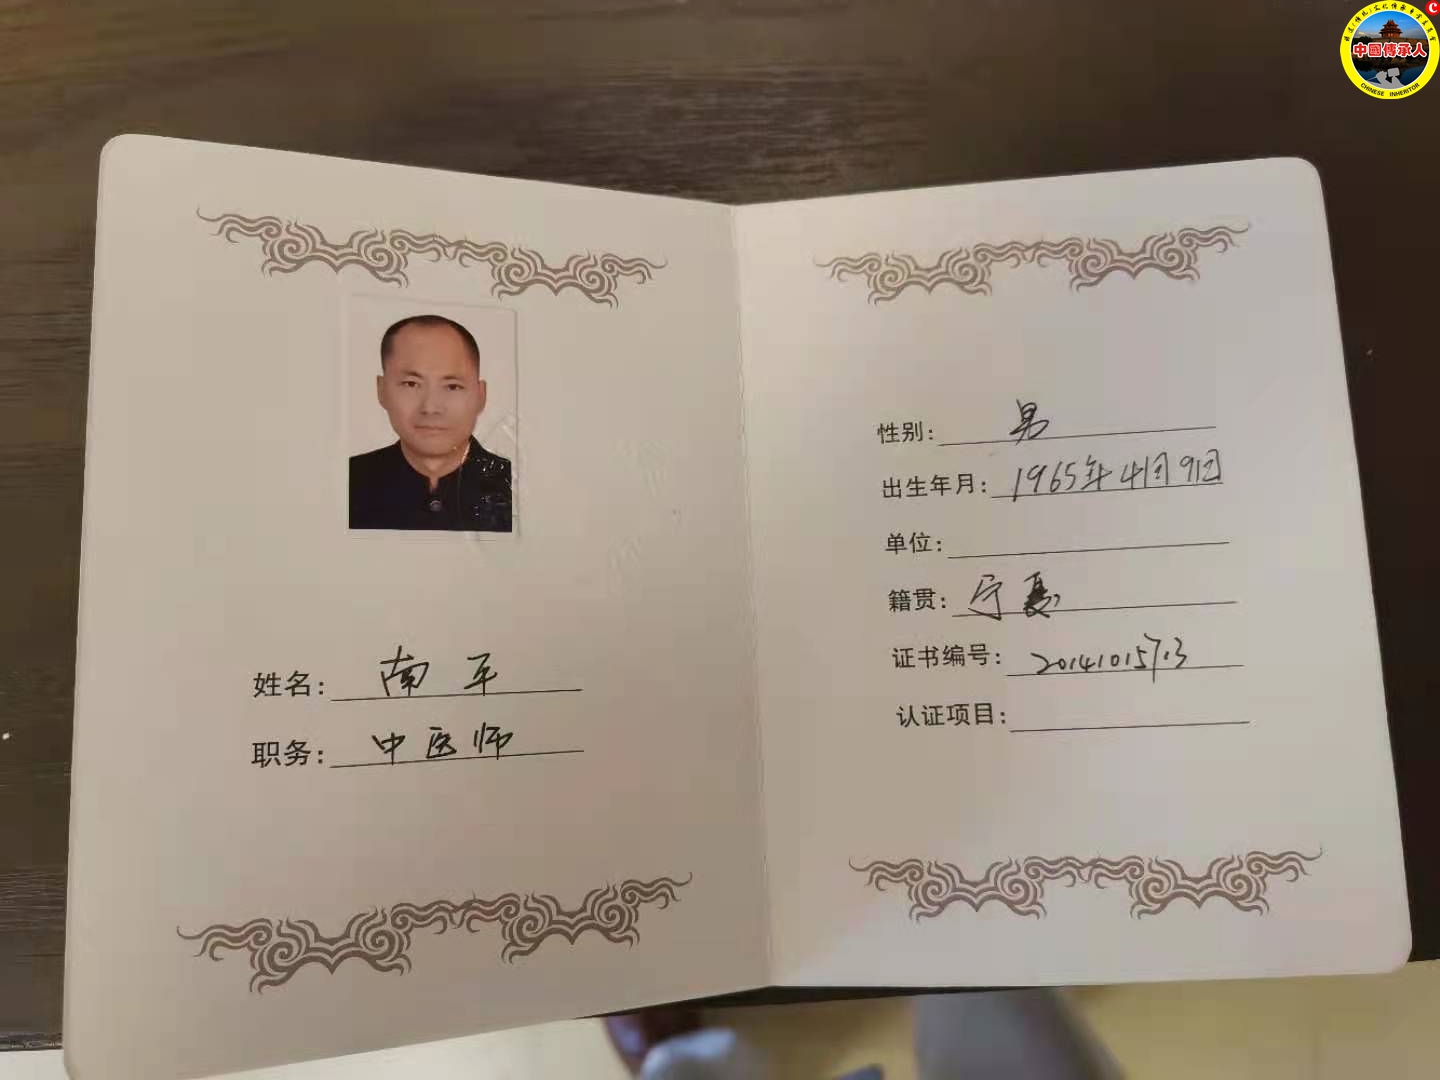 中國傳承人
CHINESE INHERITOR
C
姓名：南平
职务：中医师
性别：男
出生年月：1965年4月9日
单位：
籍贯：宁夏
证书编号：
认证项目：